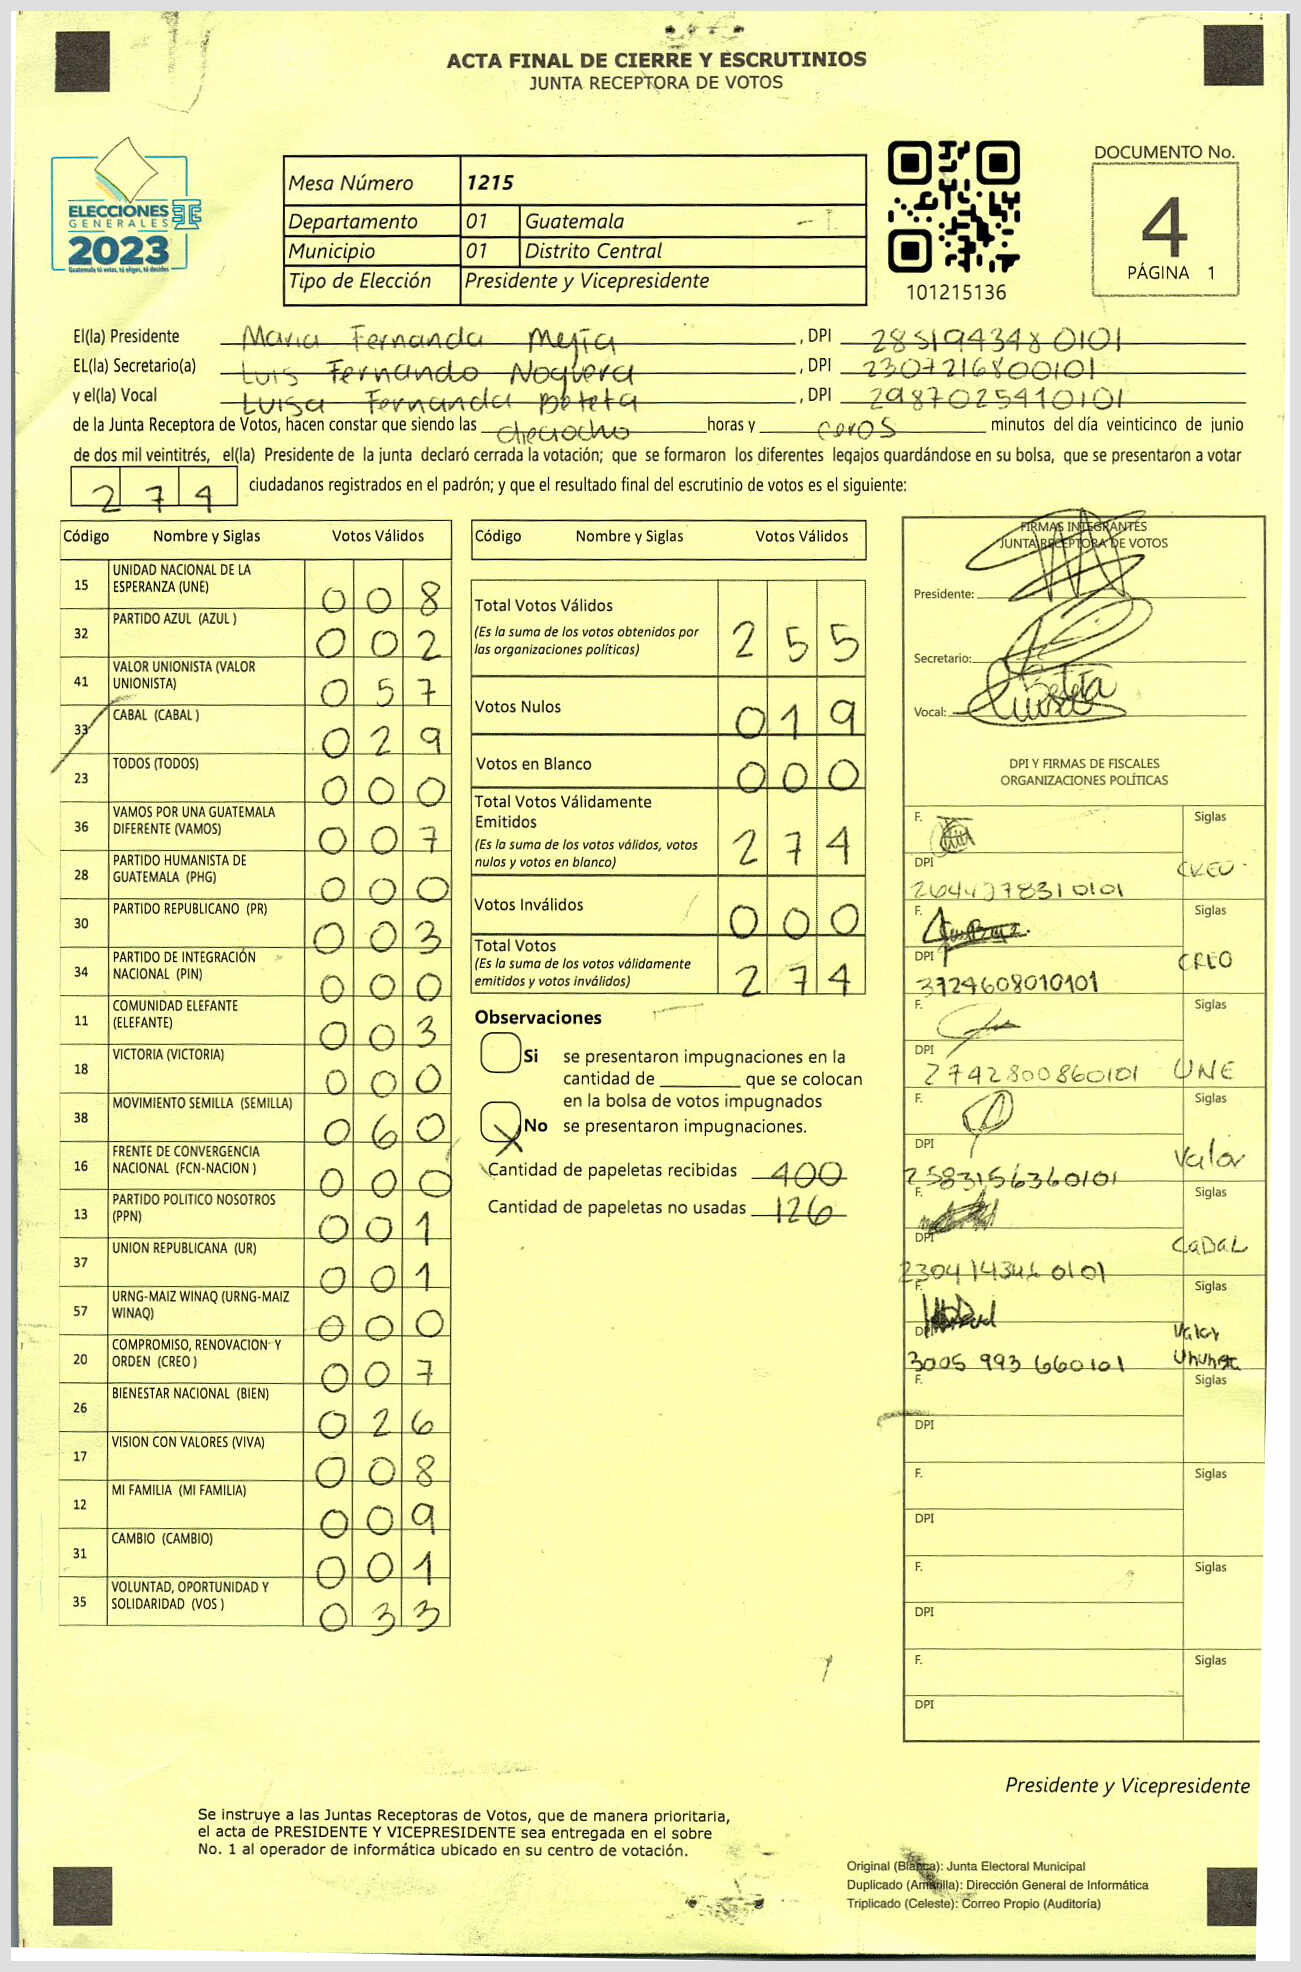 ACTA FINAL DE CIERRE Y ESCRUTINIOS
JUNTA RECEPTORA DE VOTOS
ELECCIONES
GENERALES
2023
Guatemala tú votas, tú eliges, tú decides
Mesa Número 1215
Departamento 01 Guatemala
Municipio 01 Distrito Central
Tipo de Elección Presidente y Vicepresidente
101215136
DOCUMENTO No.
4
PÁGINA 1
El(la) Presidente Maria Fernanda Mejía, DPI 2851943480101
EL(la) Secretario(a) Luis Fernando Noguera, DPI 2307216800101
y el(la) Vocal Luisa Fernanda Beteta, DPI 2987025910101
de la Junta Receptora de Votos, hacen constar que siendo las dieciocho horas y ceros minutos del día veinticinco de junio
de dos mil veintitrés, el(la) Presidente de la junta declaró cerrada la votación; que se formaron los diferentes legajos guardándose en su bolsa, que se presentaron a votar
274 ciudadanos registrados en el padrón; y que el resultado final del escrutinio de votos es el siguiente:
Código Nombre y Siglas Votos Válidos
15 UNIDAD NACIONAL DE LA ESPERANZA (UNE) 008
32 PARTIDO AZUL (AZUL ) 002
41 VALOR UNIONISTA (VALOR UNIONISTA) 057
33 CABAL (CABAL ) 029
23 TODOS (TODOS) 000
36 VAMOS POR UNA GUATEMALA DIFERENTE (VAMOS) 007
28 PARTIDO HUMANISTA DE GUATEMALA (PHG) 000
30 PARTIDO REPUBLICANO (PR) 003
34 PARTIDO DE INTEGRACIÓN NACIONAL (PIN) 000
11 COMUNIDAD ELEFANTE (ELEFANTE) 003
18 VICTORIA (VICTORIA) 000
38 MOVIMIENTO SEMILLA (SEMILLA) 060
16 FRENTE DE CONVERGENCIA NACIONAL (FCN-NACION ) 000
13 PARTIDO POLITICO NOSOTROS (PPN) 001
37 UNION REPUBLICANA (UR) 001
57 URNG-MAIZ WINAQ (URNG-MAIZ WINAQ) 000
20 COMPROMISO, RENOVACION Y ORDEN (CREO ) 007
26 BIENESTAR NACIONAL (BIEN) 026
17 VISION CON VALORES (VIVA) 008
12 MI FAMILIA (MI FAMILIA) 009
31 CAMBIO (CAMBIO) 001
35 VOLUNTAD, OPORTUNIDAD Y SOLIDARIDAD (VOS ) 033
Código Nombre y Siglas Votos Válidos
Total Votos Válidos 255
(Es la suma de los votos obtenidos por
las organizaciones políticas)
Votos Nulos 019
Votos en Blanco 000
Total Votos Válidamente
Emitidos 274
(Es la suma de los votos válidos, votos
nulos y votos en blanco)
Votos Inválidos 000
Total Votos 274
(Es la suma de los votos válidamente
emitidos y votos inválidos)
Observaciones
Si se presentaron impugnaciones en la
cantidad de ________ que se colocan
en la bolsa de votos impugnados
No se presentaron impugnaciones.
Cantidad de papeletas recibidas 400
Cantidad de papeletas no usadas 126
FIRMAS INTEGRANTES
JUNTA RECEPTORA DE VOTOS
Presidente:
Secretario:
Vocal: Beteta
DPI Y FIRMAS DE FISCALES
ORGANIZACIONES POLÍTICAS
F. Siglas
DPI CREO
F. Siglas
DPI 3724608010101 CREO
F. Siglas
DPI 2742800860101 UNE
F. Siglas
DPI 2583156360101 Valor
F. Siglas
DPI CaBaL
F. Siglas
DPI 3005 993 660101 Valor
F. Siglas
DPI
F. Siglas
DPI
F. Siglas
DPI
F. Siglas
DPI
Presidente y Vicepresidente
Se instruye a las Juntas Receptoras de Votos, que de manera prioritaria,
el acta de PRESIDENTE Y VICEPRESIDENTE sea entregada en el sobre
No. 1 al operador de informática ubicado en su centro de votación.
Original (Blanca): Junta Electoral Municipal
Duplicado (Amarilla): Dirección General de Informática
Triplicado (Celeste): Correo Propio (Auditoría)